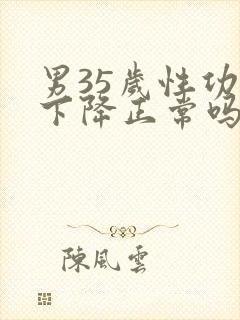 男35歲性功
下降正常吗
陳風雲